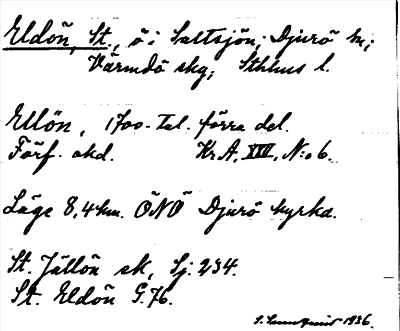 Eldön, St., ö i Saltsjön; Djurö sn;
Värmdö skg; Sthlms l.
Ellön, 1700-tal. förra del.
Förf. okd. Kr.A, XVII, N:o 6.
Läge 8,4 km. ÖNÖ Djurö kyrka.
St. Jällön sk, Sj: 234.
St. Eldön G. 76.
1936.